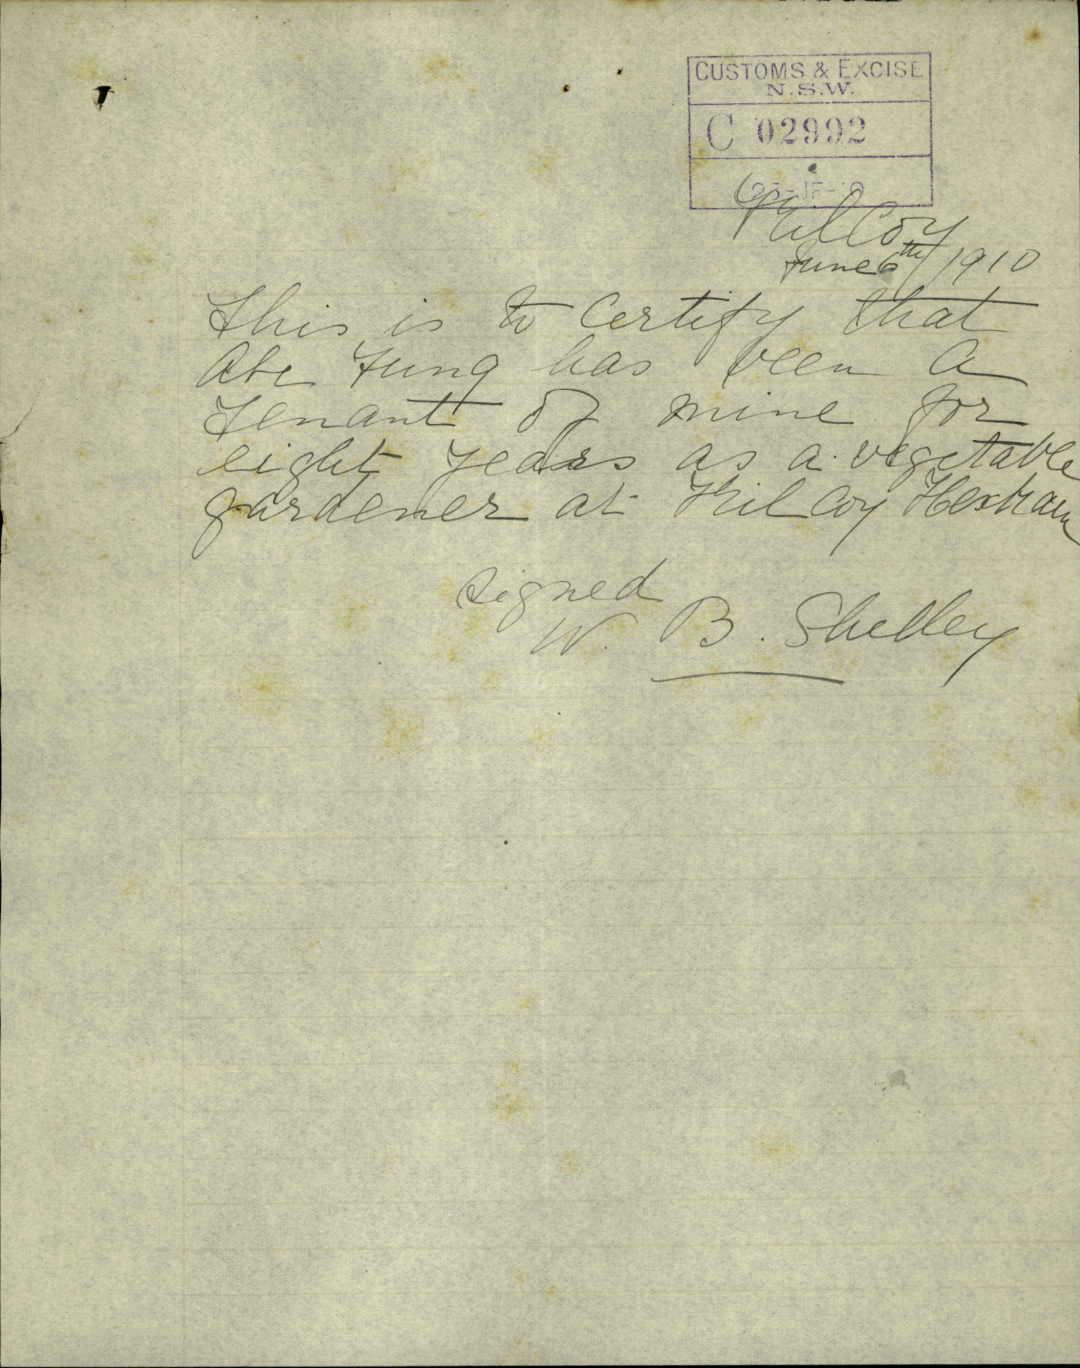 CUSTOMS & EXCISE
N.S.W.
C 02992
Kilcoy
June 6th/1910
This is to Certify that
Abe Fung has been a
Tenant of mine for
eight years as a vegetable
gardener at Kilcoy Hexham
signed
W. B. Shelley